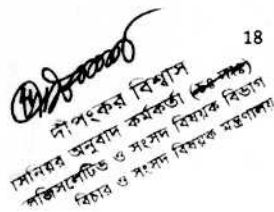 18
দীপংকর বিশ্বাস
সিনিয়র অনুবাদ কর্মকর্তা
লেজিসলেটিভ ও সংসদ বিষয়ক বিভাগ
বিচার ও সংসদ বিষয়ক মন্ত্রণালয়